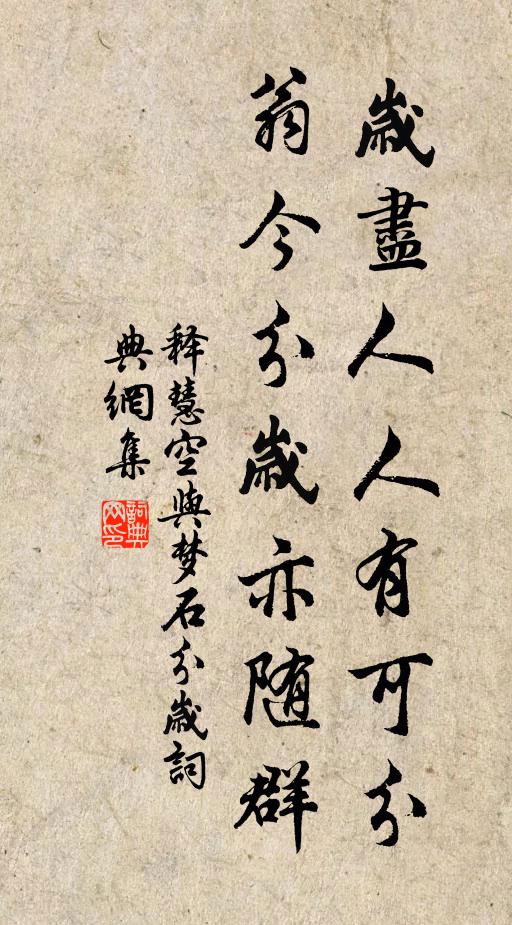 歲盡人人有可分
翁今分歲亦随群
释慧空與梦石分歲詞
典網集
詞典網印